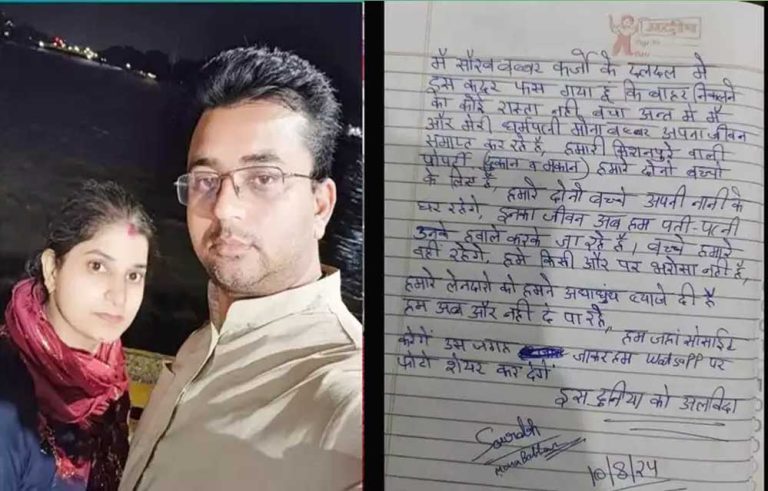 मैं सौरव बब्बर कर्जो के दलदल मे
इस कदर फस गया हूं कि बाहर निकलने
का कोई रास्ता नही बचा अन्त मे मैं
और मेरी धर्मपत्नी मोना बब्बर अपना जीवन
समाप्त कर रहे है, हमारी किशनपुरे वाली
प्रोपर्टी (दुकान व मकान) हमारे दोनो बच्चो
के लिए है, हमारे दोनो बच्चे अपनी नानी के
घर रहेगे, इनका जीवन अब हम पती-पत्नी
उनके हवाले करके जा रहे है। बच्चे हमारे
वहीं रहेगे, हमे किसी और पर भरोसा नही है,
हमारे लेनदारो को हमने अंधाधुंध ब्याजे दी है
हम अब और नही दे पा रहे, हम जहां सोसाईट
करेगें उस जगह जाकर हम WatsAPP पर
फोटो शेयर कर देगें
इस दुनिया को अलविदा
Saurabh
Mona Babbar
10/8/24